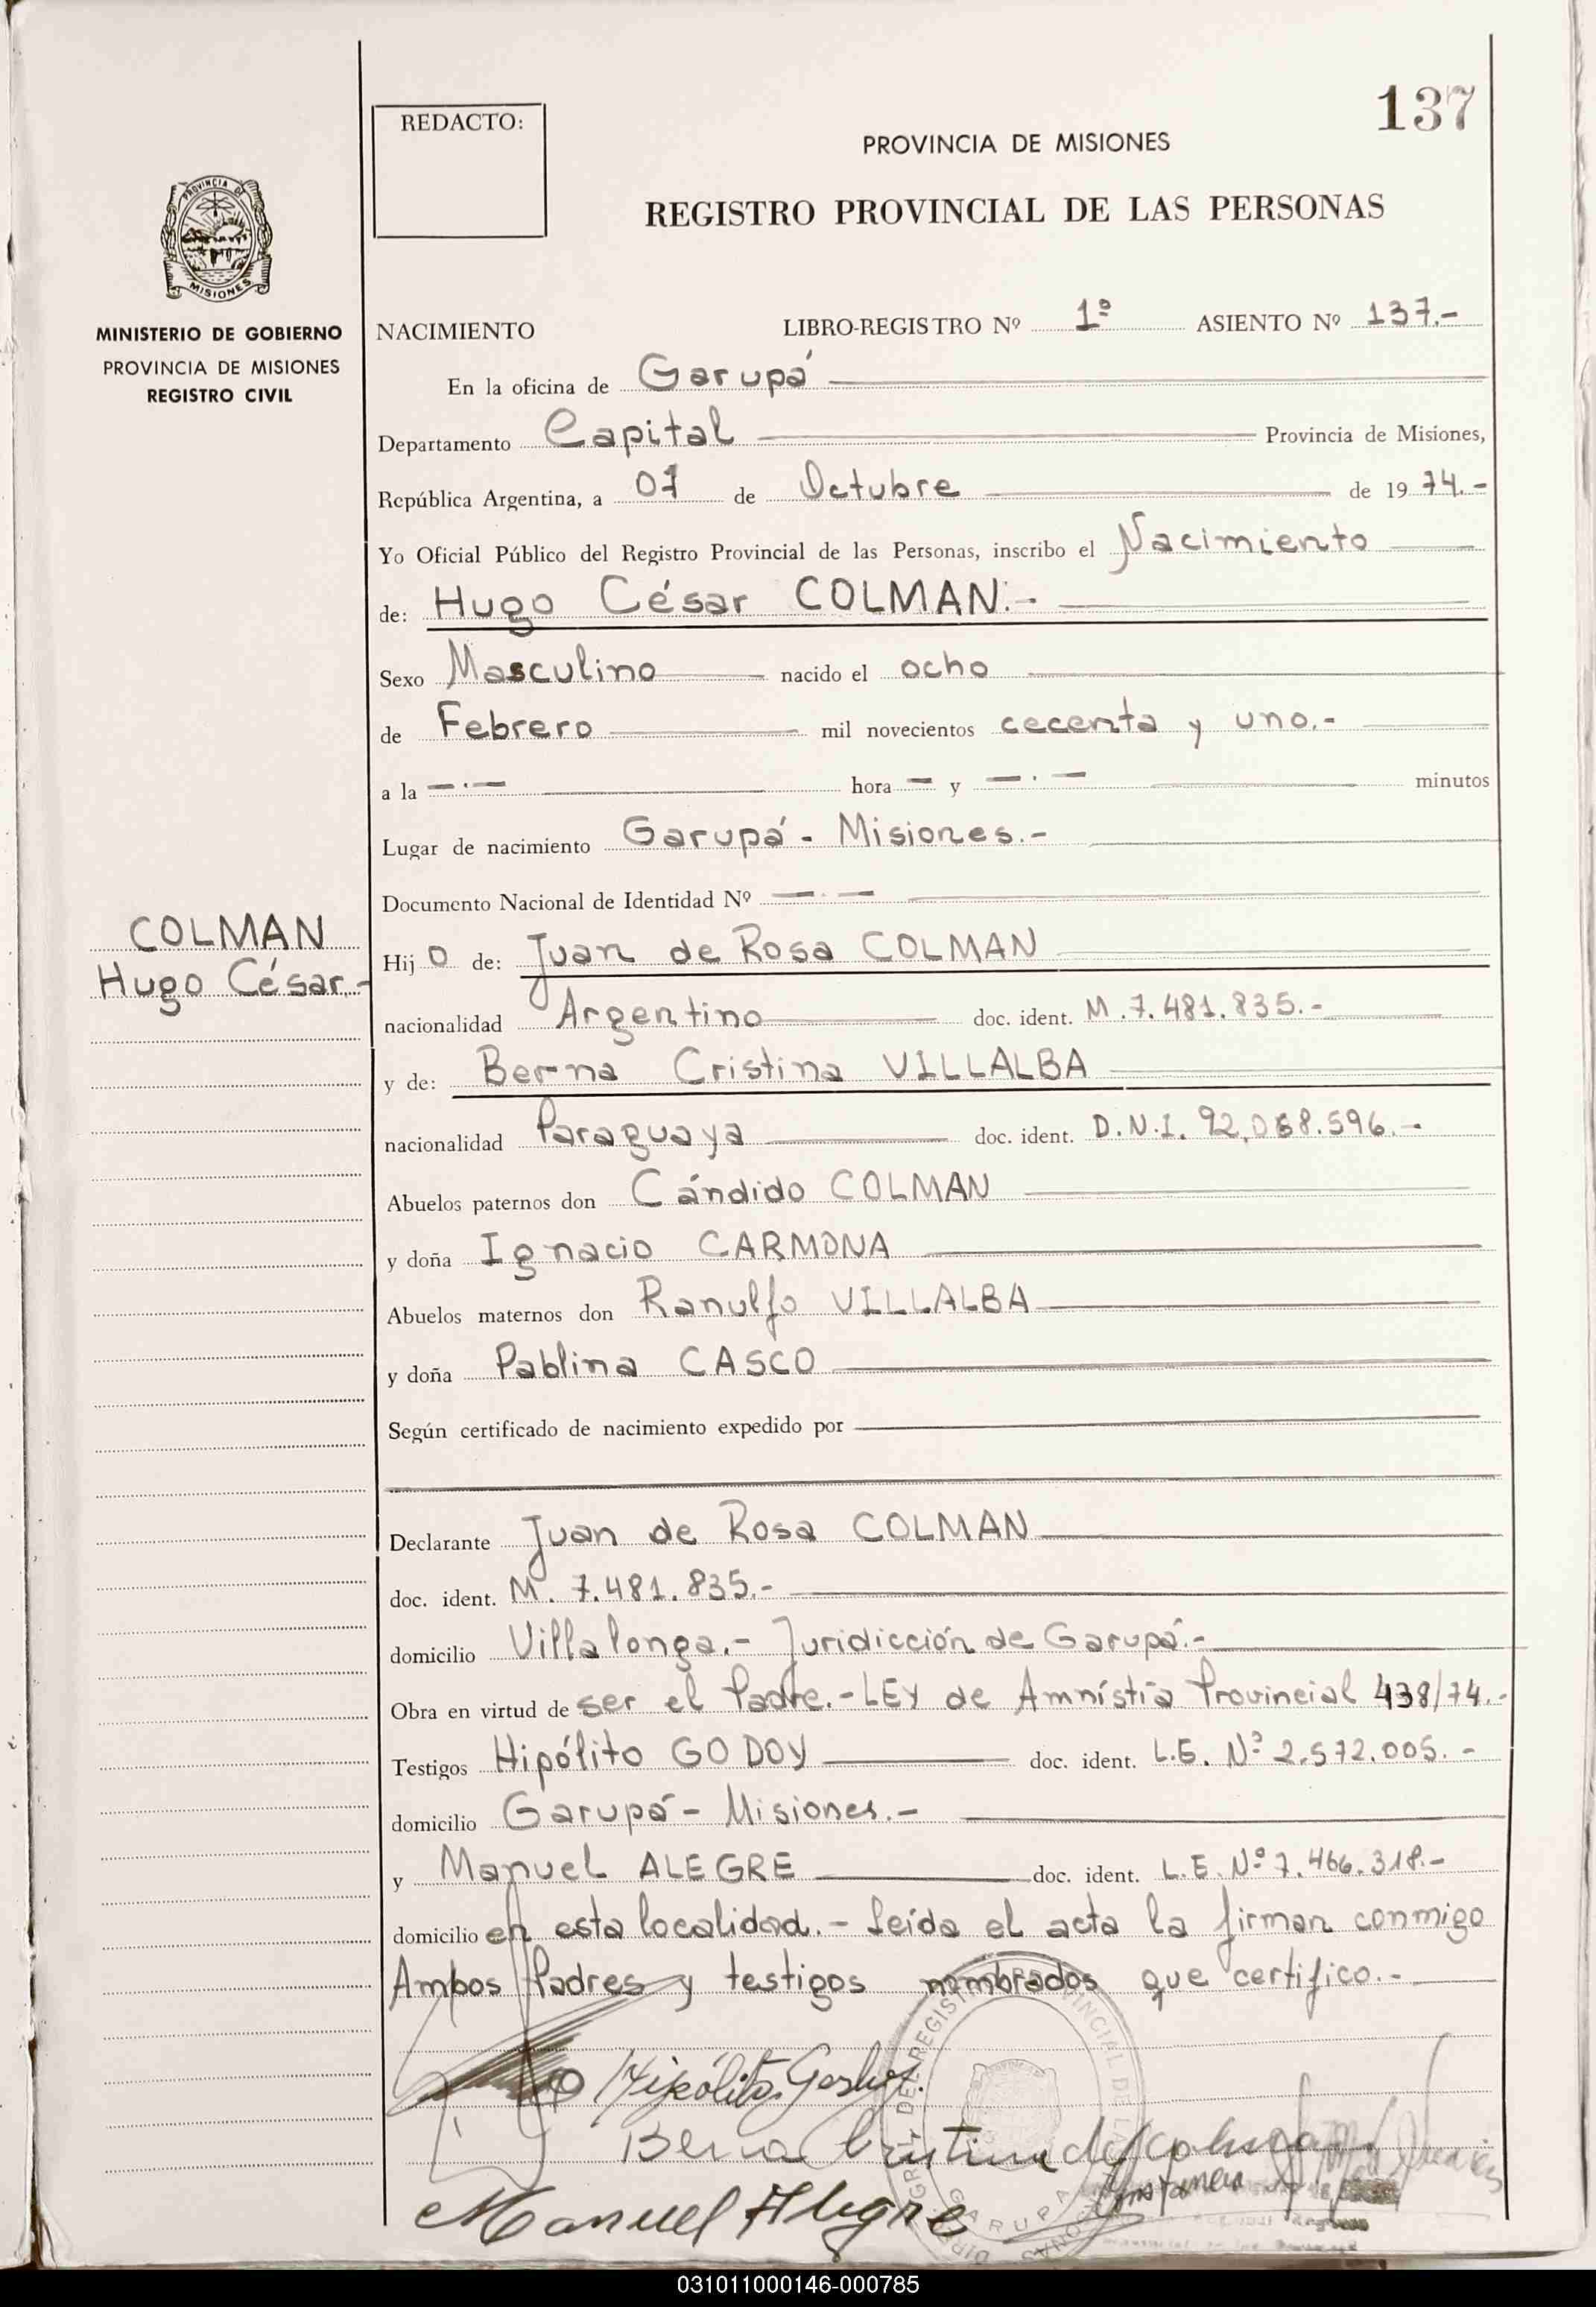 137
REDACTO:
PROVINCIA DE MISIONES
REGISTRO PROVINCIAL DE LAS PERSONAS
PROVINCIA DE
MISIONES
MINISTERIO DE GOBIERNO
PROVINCIA DE MISIONES
REGISTRO CIVIL
NACIMIENTO LIBRO-REGISTRO Nº 1º ASIENTO Nº 137.-
En la oficina de Garupá
Departamento Capital Provincia de Misiones,
República Argentina, a 07 de Octubre de 1974.-
Yo Oficial Público del Registro Provincial de las Personas, inscribo el Nacimiento
de: Hugo César COLMAN.-
Sexo Masculino nacido el ocho
de Febrero mil novecientos cecenta y uno.-
a la —.— hora — y —.— minutos
Lugar de nacimiento Garupá - Misiones.-
Documento Nacional de Identidad Nº —.—
COLMAN
Hugo César.-
Hijo de: Juan de Rosa COLMAN
nacionalidad Argentino doc. ident. M. 7.481.835.-
y de: Berna Cristina VILLALBA
nacionalidad Paraguaya doc. ident. D.N.I. 92,068.596.-
Abuelos paternos don Cándido COLMAN
y doña Ignacio CARMONA
Abuelos maternos don Ranulfo VILLALBA
y doña Pablina CASCO
Según certificado de nacimiento expedido por
Declarante Juan de Rosa COLMAN
doc. ident. M. 7.481.835.-
domicilio Villalonga.- Juridicción de Garupá.-
Obra en virtud de ser el Padre.- LEY de Amnístia Provincial 438/74.-
Testigos Hipólito GODOY doc. ident. L.E. Nº 2.572.005.-
domicilio Garupá - Misiones.-
y Manuel ALEGRE doc. ident. L.E. Nº 7.466.318.-
domicilio en esta localidad.- Leída el acta la firman conmigo
Ambos Padres y testigos nombrados que certifico.-
Hipólito Godoy.
Berna Cristina de Colman
Manuel Alegre
GARUPA
031011000146-000785